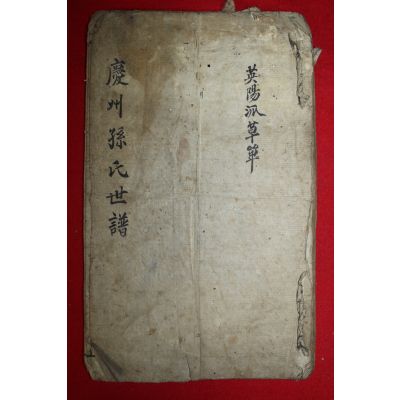 英陽派草单
慶州孫氏世譜